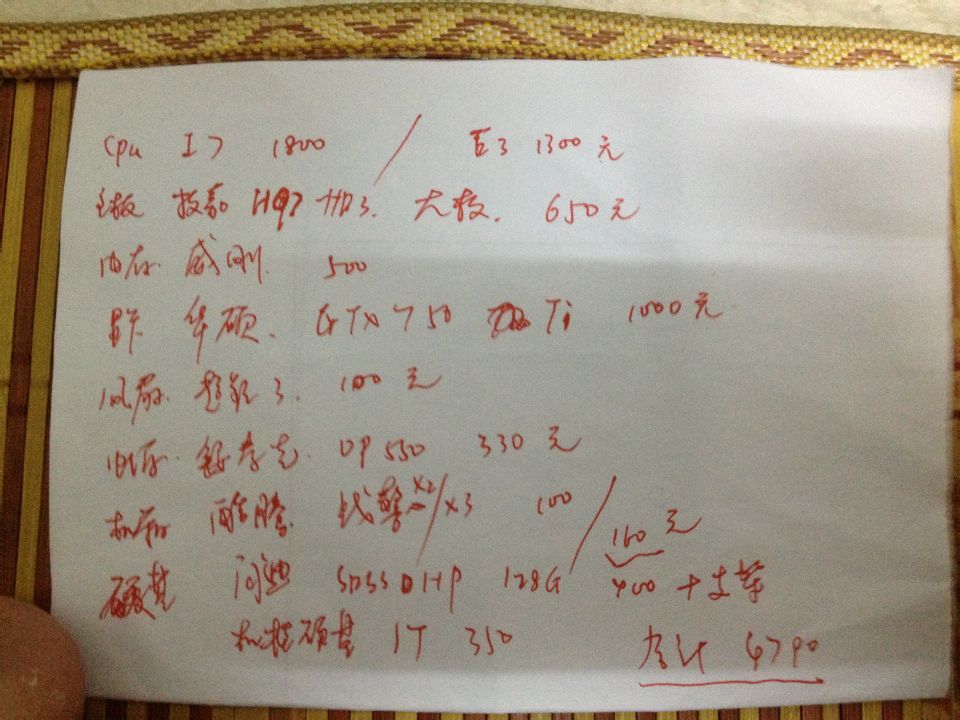 cpu I7 1800 / E3 1300元
主板 技嘉 H97 HD3. 大板. 650元
内存. 威刚. 500
显卡 华硕. GTX 750 Ti 1000元
风扇. 超频3. 100元
330元
机箱 酷腾 线 x2/x3 100 / 160元
硬盘 闪迪 128G 400 + 支架
机械硬盘 1T 350
合计 4790